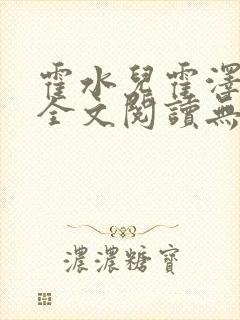 霍水兒霍澤
全文閱讀無
濃濃糖寶